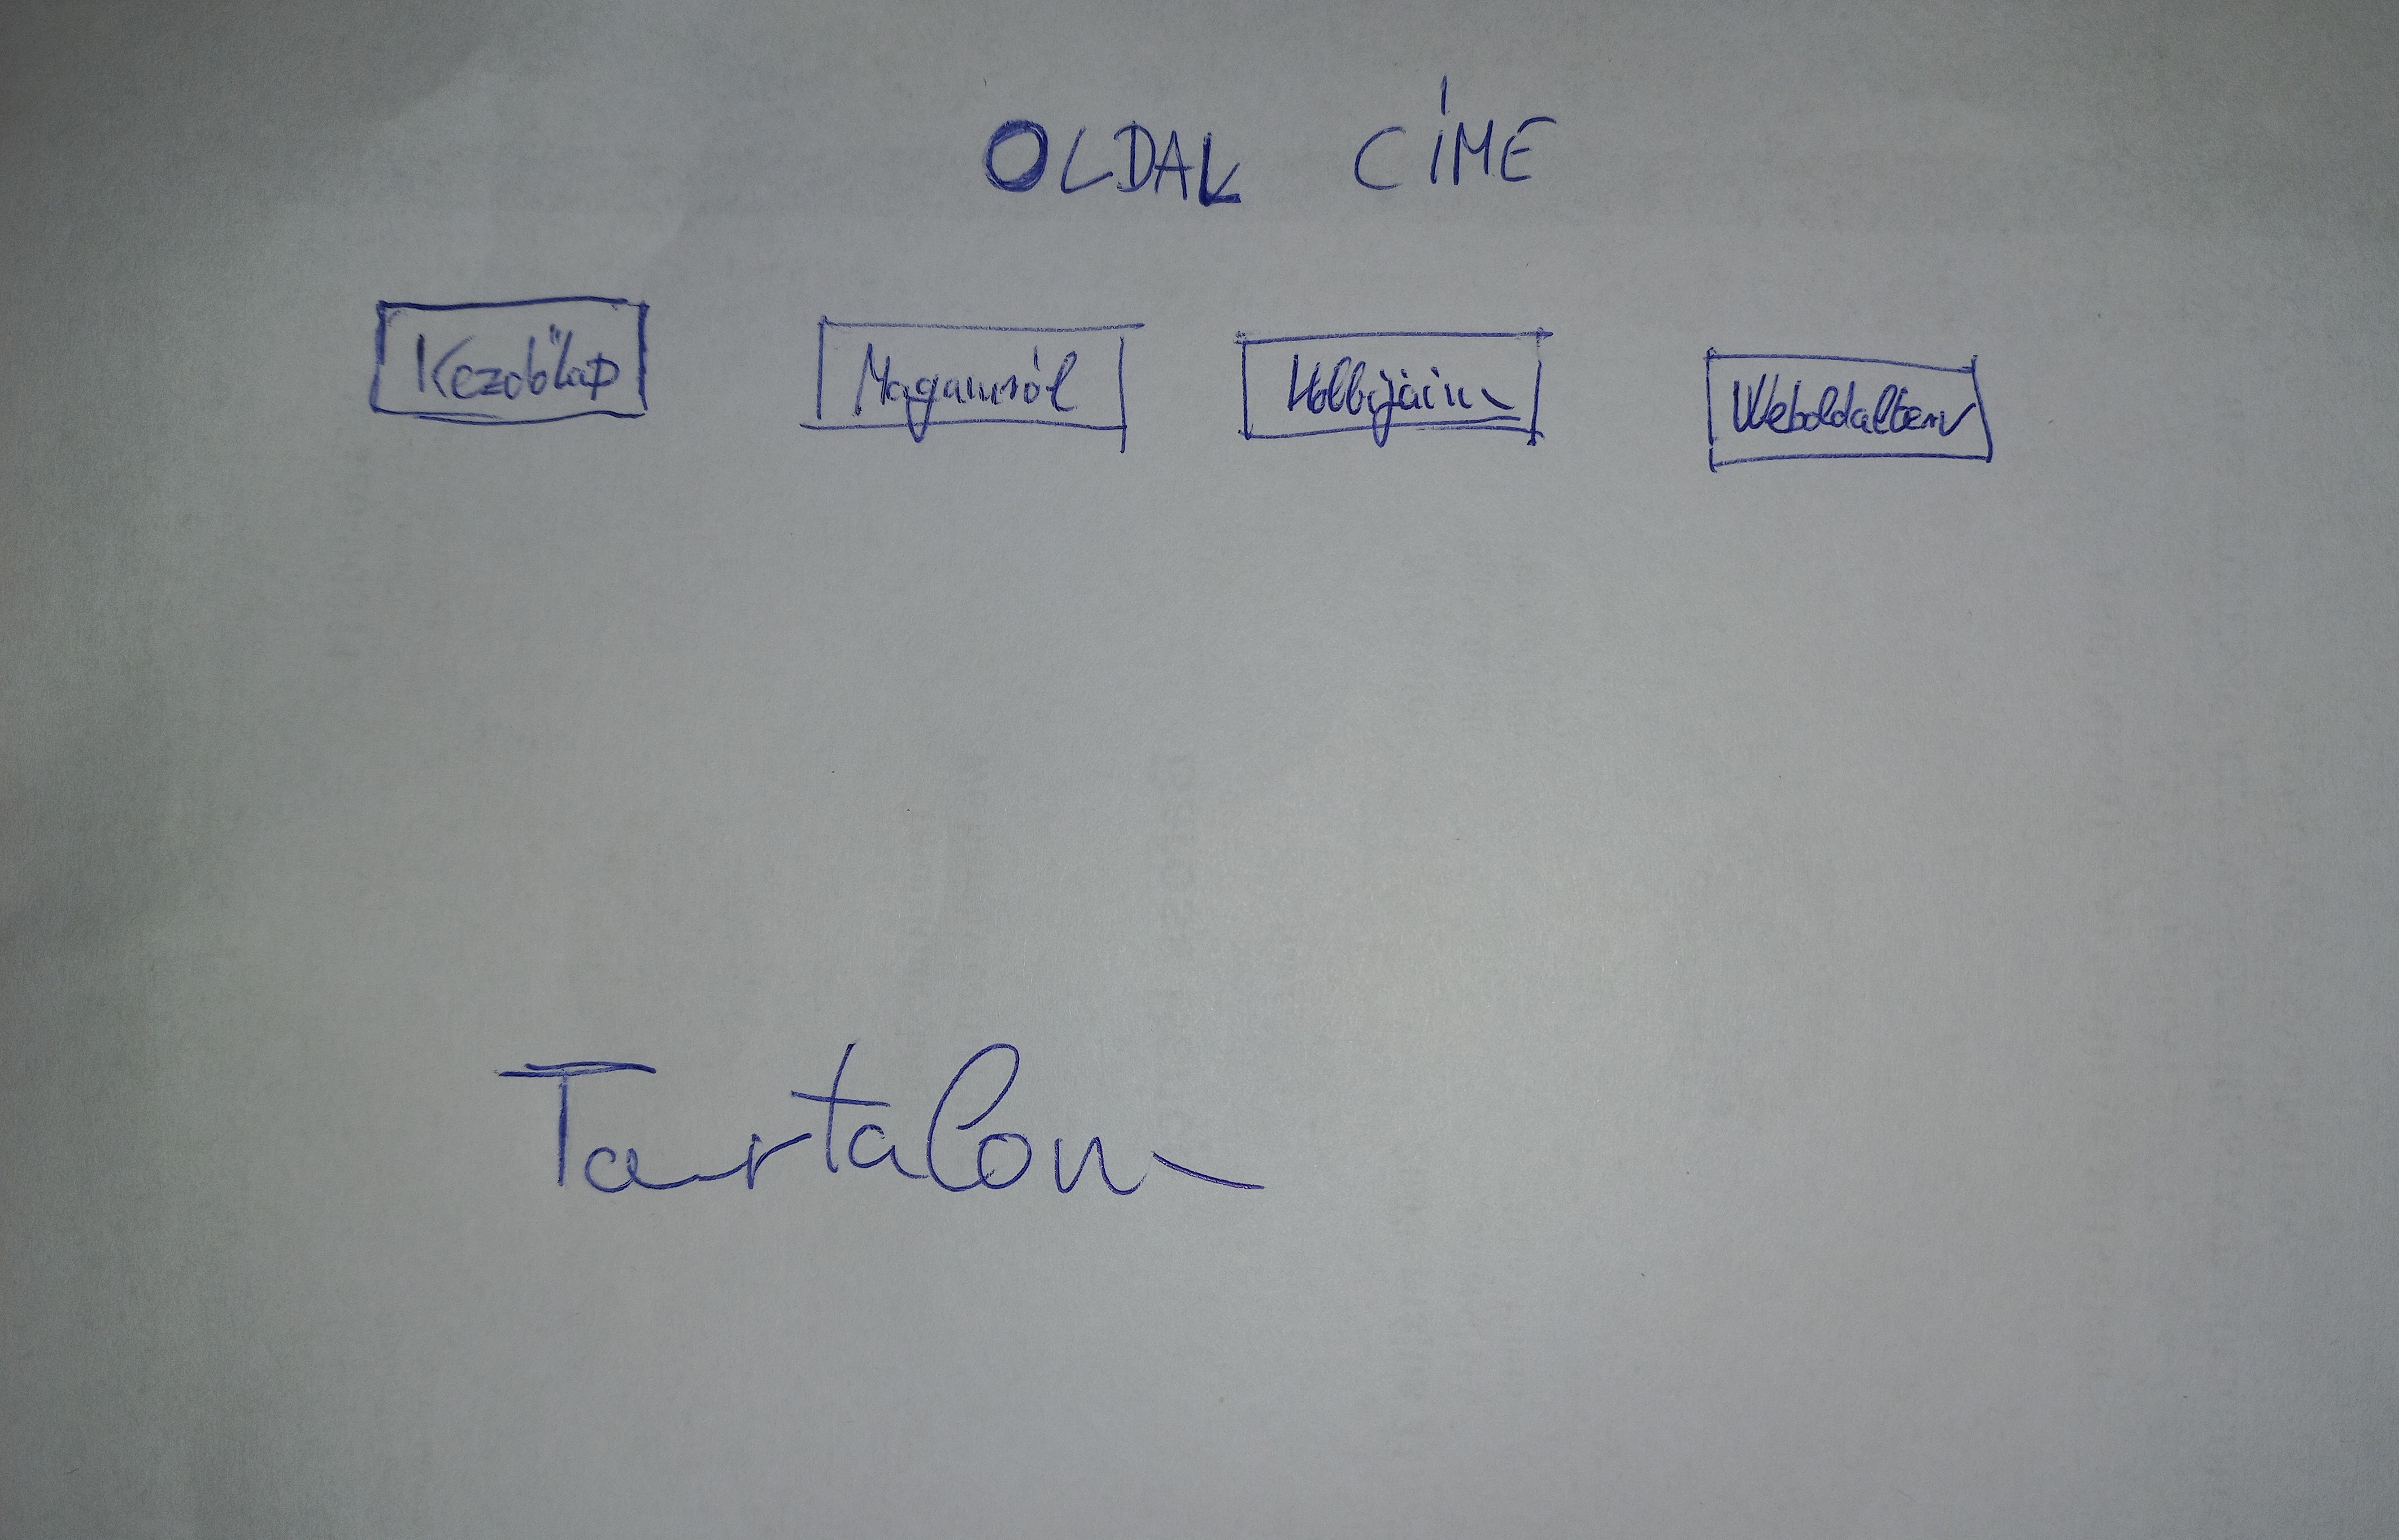 OLDAL CÍME
Kezdőlap Magamról Hobbijaim Weboldalterv
Tartalom